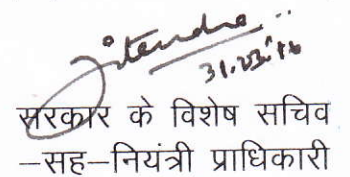 Jitendra
सरकार के विशेष सचिव
–सह–नियंत्री प्राधिकारी